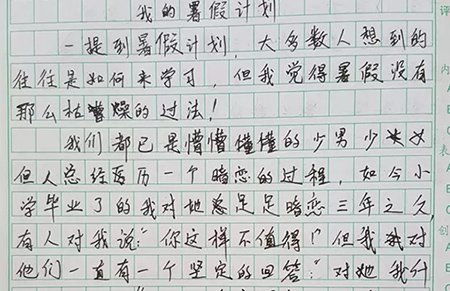 我的暑假计划
一提到暑假计划,大多数人想到的
往往是如何来学习,但我觉得暑假没有
那么枯燥的过法!
我们都已是懵懵懂懂的少男少女
但人总经历一个暗恋的过程,如今小
学毕业了的我对她总足足暗恋三年之久,
有人对我说:“你这样不值得!”但我对
他们一直有一个坚定的回答:“对她我什
评
内
表
创